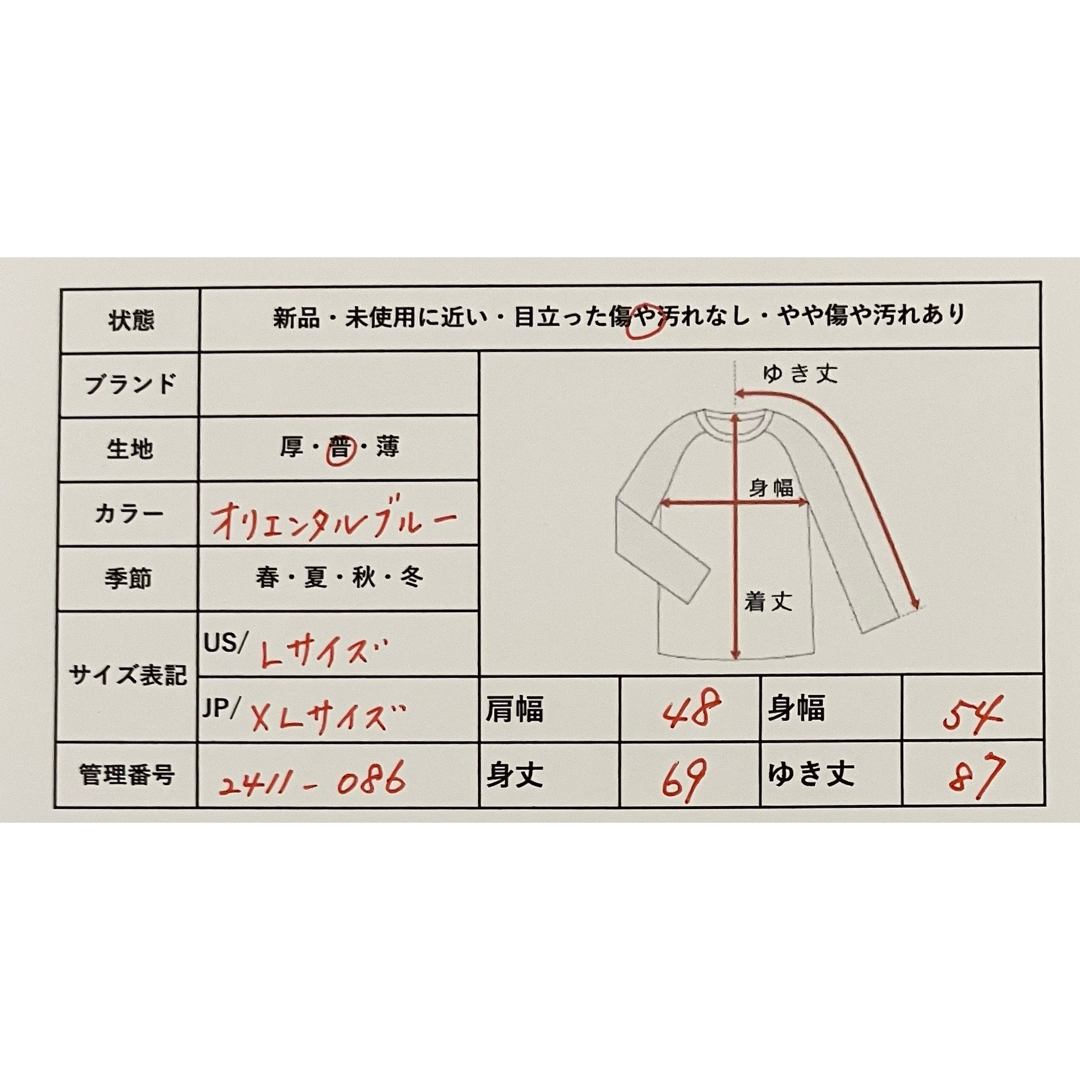 状態 新品・未使用に近い・目立った傷や汚れなし・やや傷や汚れあり
ブランド
生地 厚・普・薄
カラー オリエンタルブルー
季節 春・夏・秋・冬
サイズ表記
US/ Lサイズ
JP/ XLサイズ
管理番号 2411-086
ゆき丈
身幅
着丈
肩幅 48 身幅 54
身丈 69 ゆき丈 87